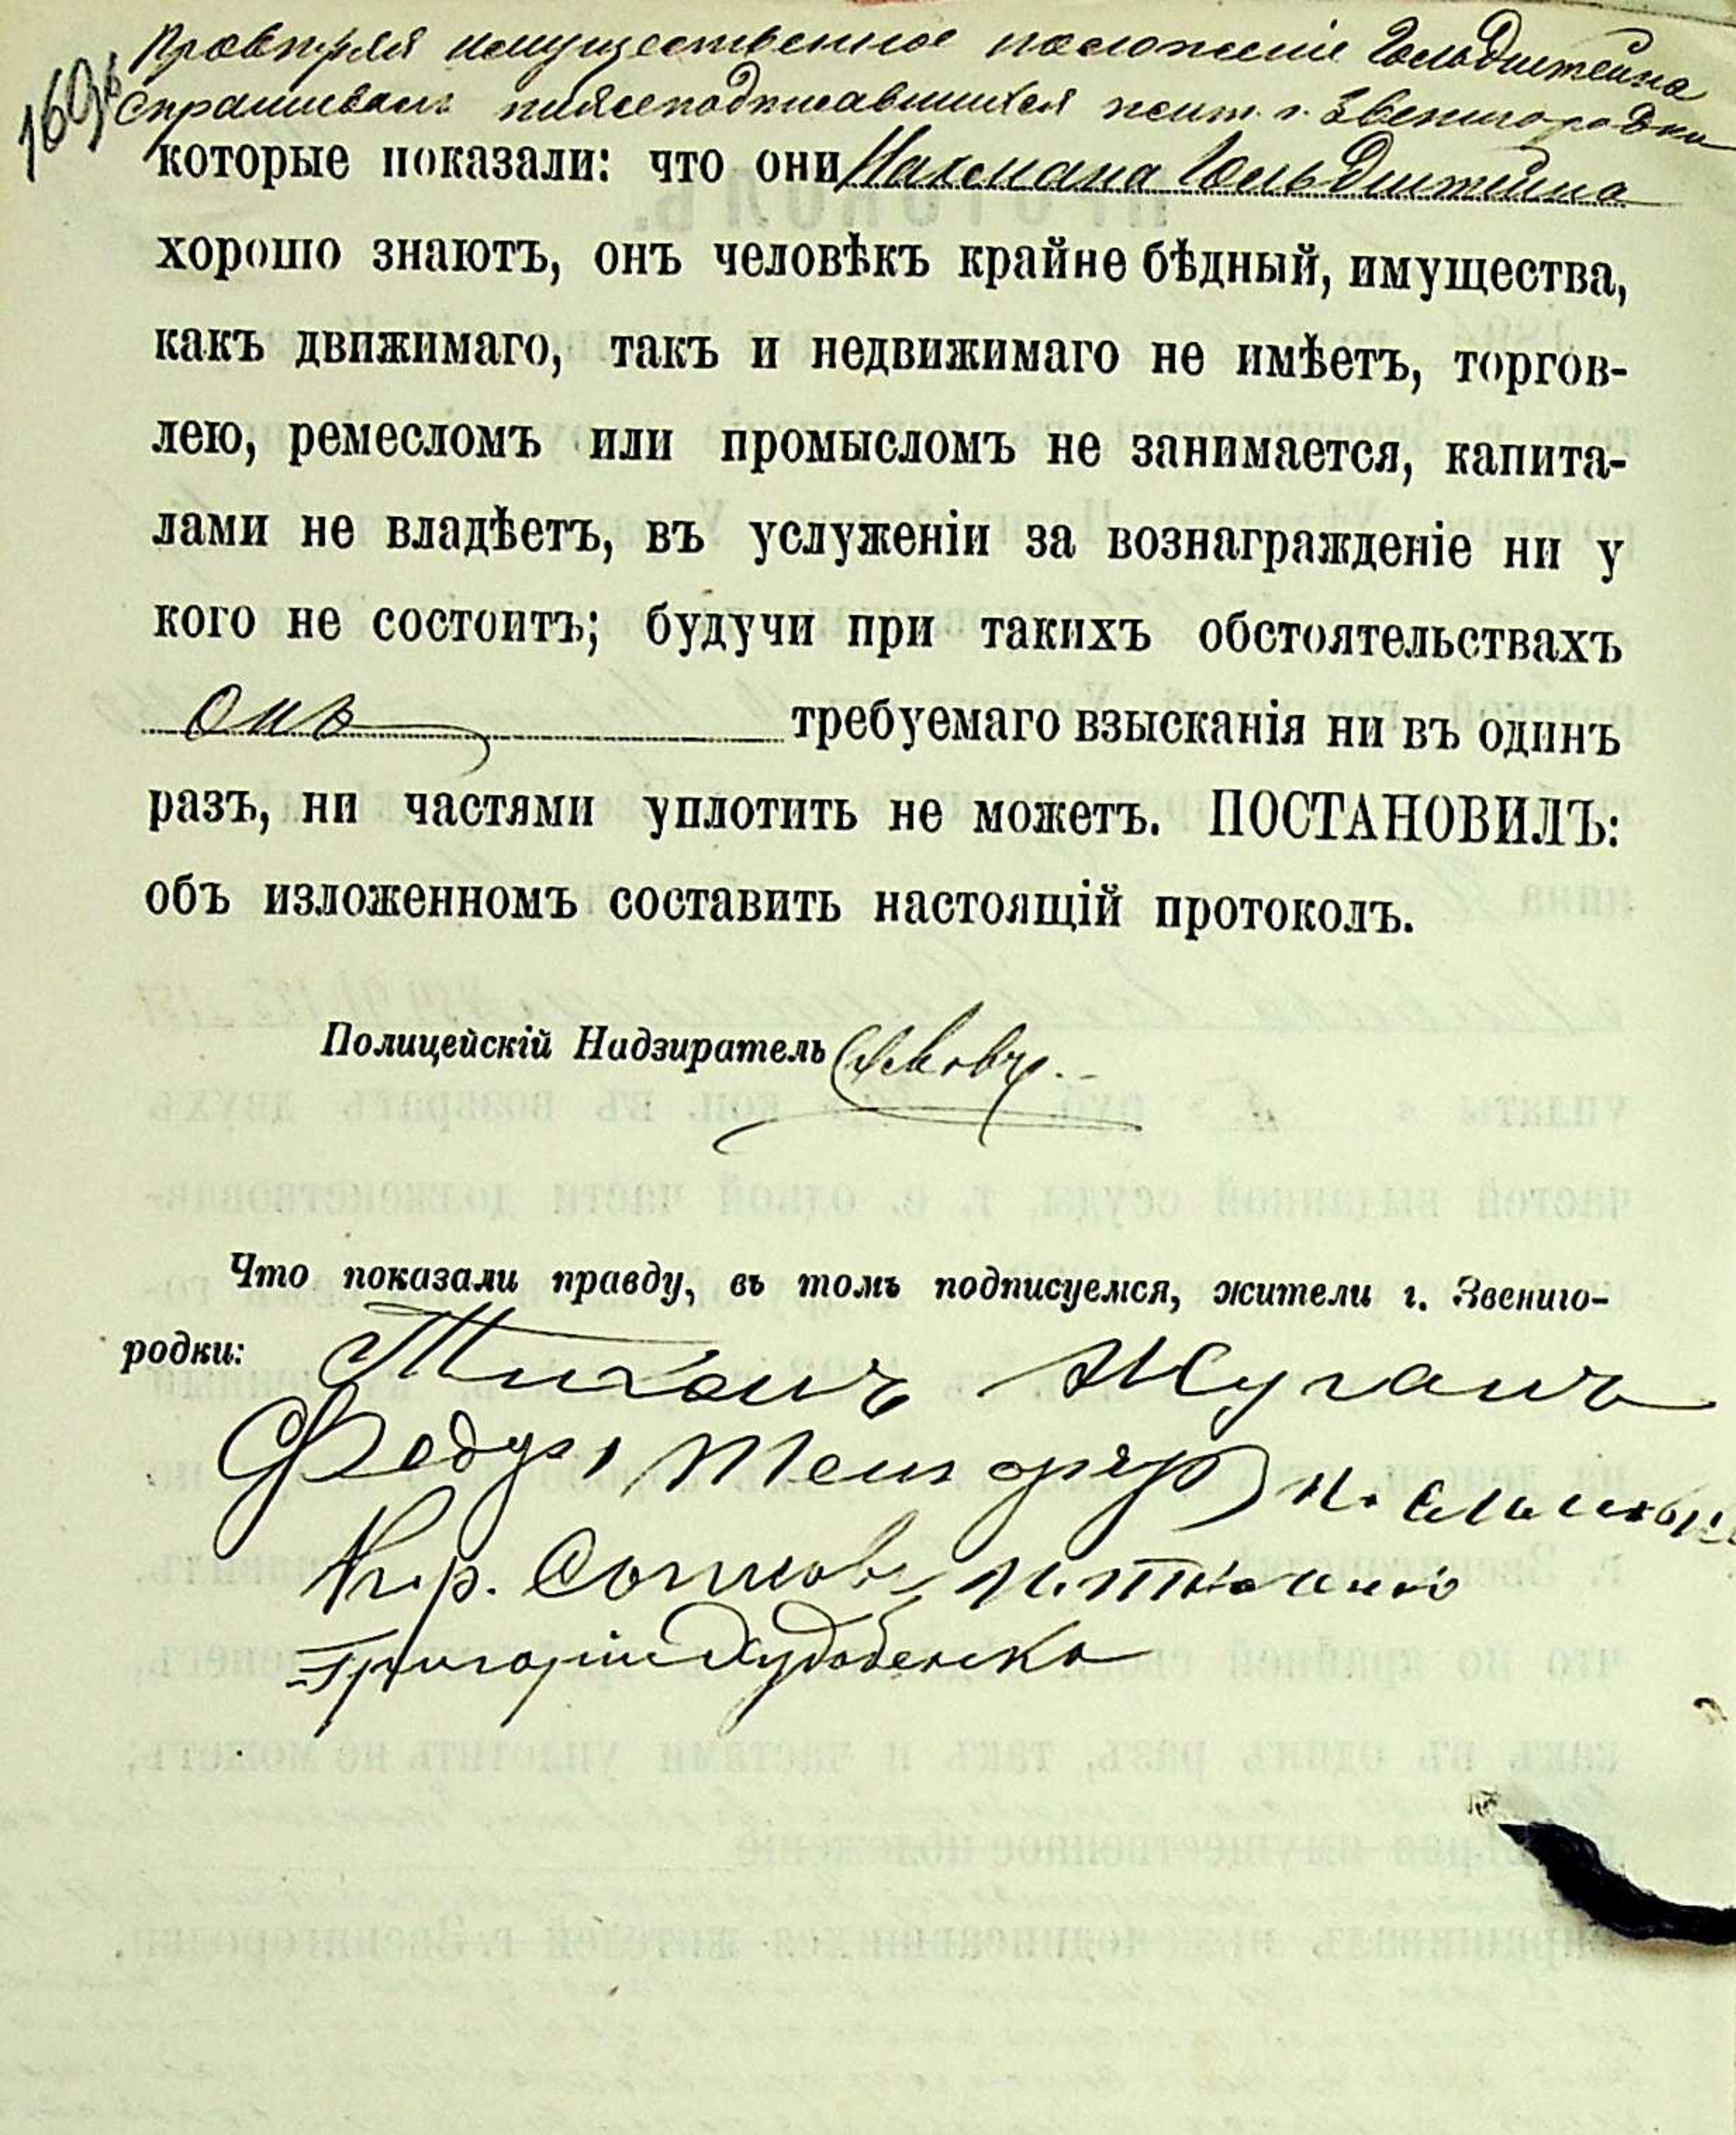 169об
Провѣряя имущественное положеніе Гольдштейна
спрашивалъ нижеподписавшихся жит. г. Звенигородки
которые показали: что они Нахмана Гольдштейна
хорошо знаютъ, онъ человѣкъ крайне бѣдный, имущества,
какъ движимаго, такъ и недвижимаго не имѣетъ, торгов-
лею, ремесломъ или промысломъ не занимается, капита-
лами не владѣетъ, въ услуженіи за вознагражденіе ни у
кого не состоитъ; будучи при такихъ обстоятельствахъ
онъ требуемаго взысканія ни въ одинъ
разъ, ни частями уплотить не можетъ. ПОСТАНОВИЛЪ:
объ изложенномъ составить настоящій протоколъ.
Полицейскій Надзиратель
Что показали правду, въ томъ подписуемся, жители г. Звениго-
родки: Тихонъ Жуганъ
Григорій Худобенко